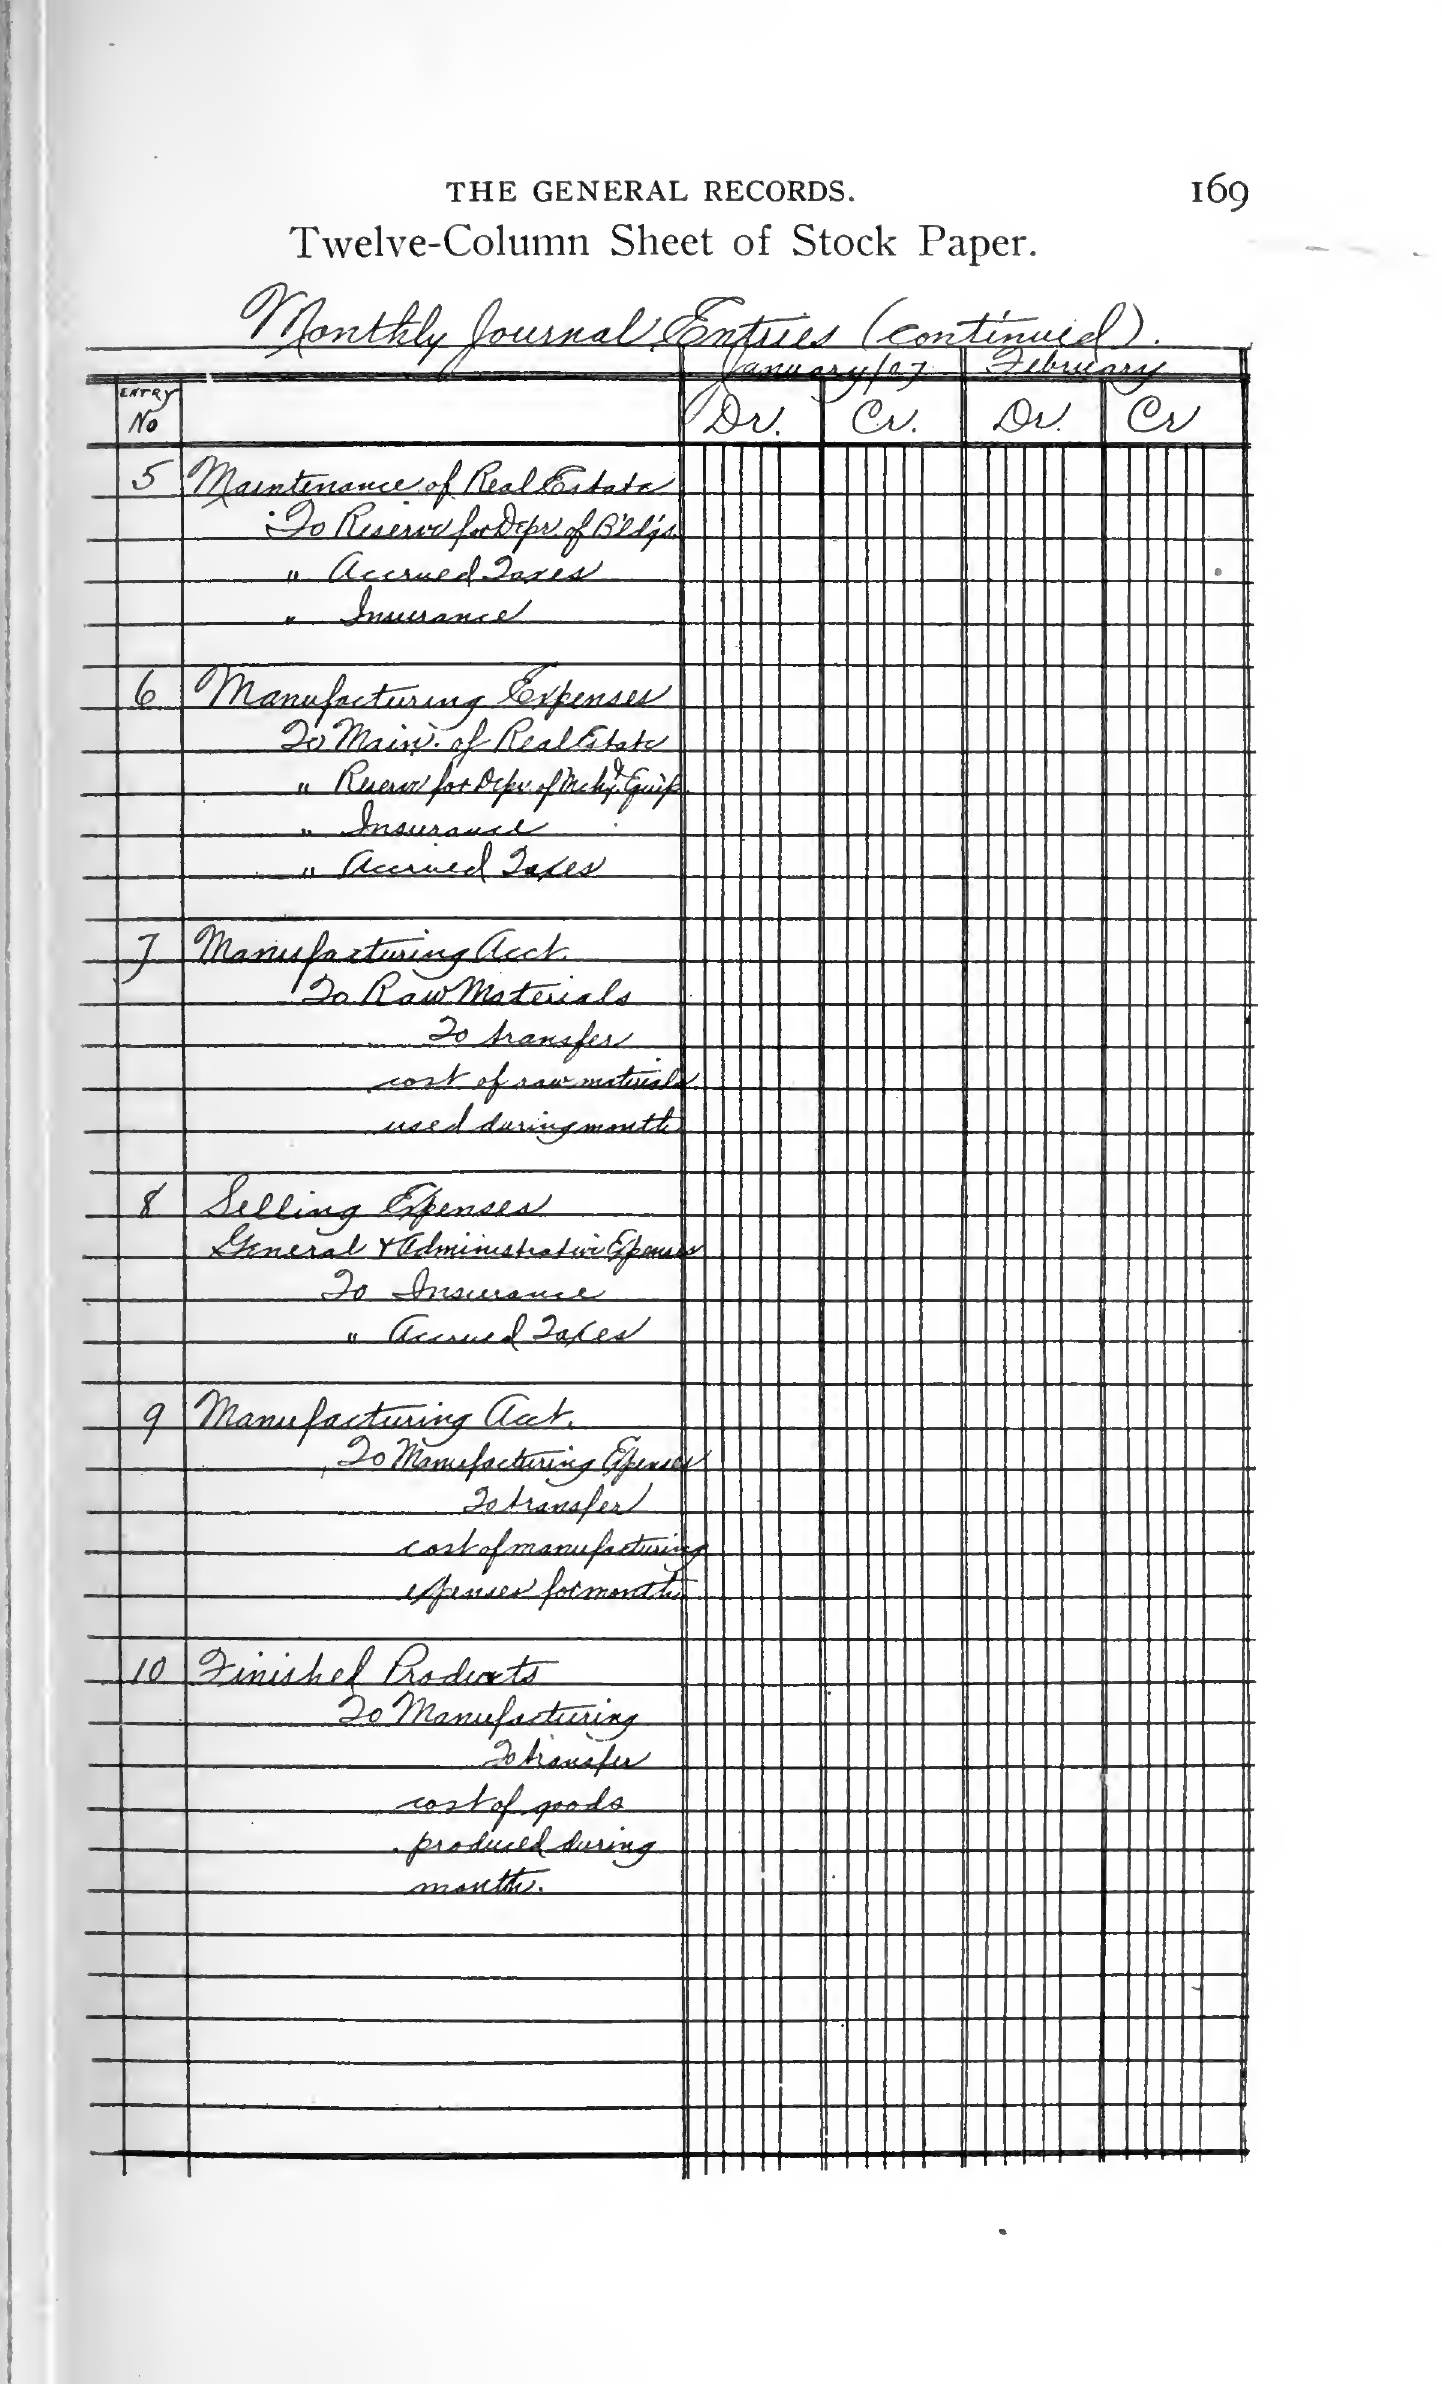 THE GENERAL RECORDS. 169
Twelve-Column Sheet of Stock Paper.
Monthly Journal Entries (continued).
January/07 February
ENTRY
No Dr. Cr. Dr. Cr
5 Maintenance of Real Estate
To Reserve for Depr. of B'ld'gs.
" Accrued Taxes
" Insurance
6 Manufacturing Expenses
To Main. of Real Estate
" Reserve for Depr. of Mchy & Equip.
" Insurance
" Accrued Taxes
7 Manufacturing Acct.
To Raw Materials
To transfer
cost of raw materials
used during month
8 Selling Expenses
General & Administrative Expenses
To Insurance
" Accrued Taxes
9 Manufacturing Acct.
To Manufacturing Expenses
To transfer
cost of manufacturing
expenses for month.
10 Finished Products
To Manufacturing
To transfer
cost of goods
produced during
month.